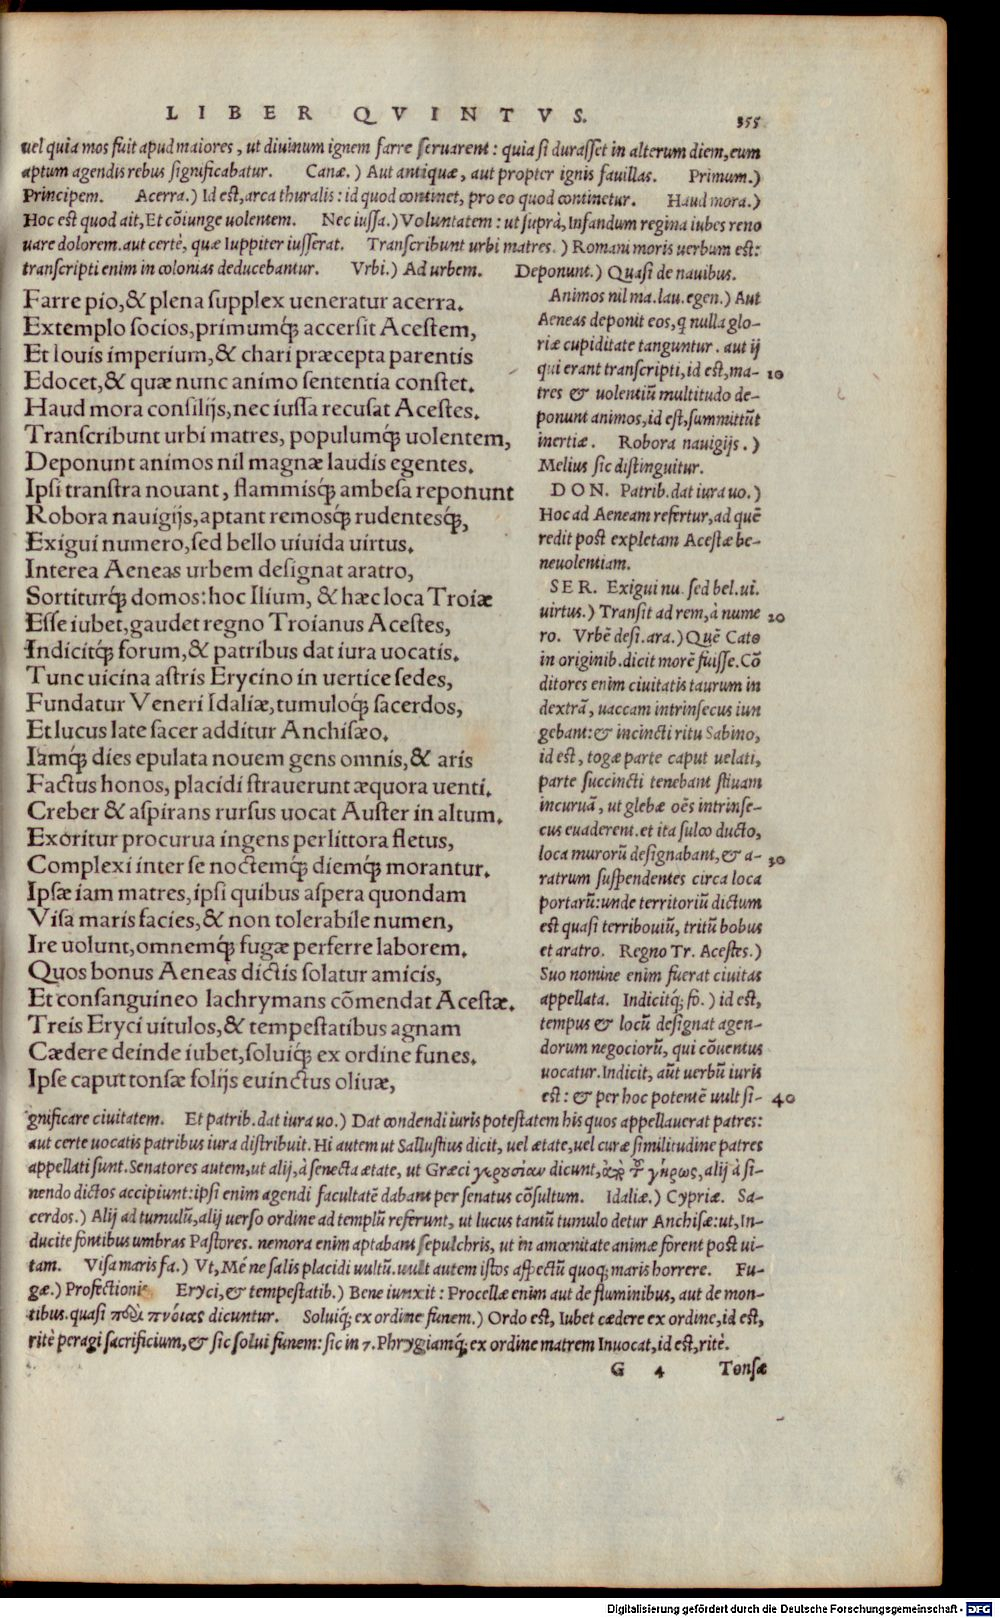 LIBER QVINTVS. 355
uel quia mos fuit apud maiores, ut diuinum ignem farre seruarent: quia si durasset in alterum diem, eum
aptum agendis rebus significabatur. Canæ.) Aut antiquæ, aut propter ignis fauillas. Primum.)
Principem. Acerra.) Id est, arca thuralis: id quod continet, pro eo quod continetur. Haud mora.)
Hoc est quod ait, Et cōiunge uolentem. Nec iussa.) Voluntatem: ut suprà, Infandum regina iubes reno
uare dolorem. aut certè, quæ Iuppiter iusserat. Transcribunt urbi matres.) Romani moris uerbum est:
transcripti enim in colonias deducebantur. Vrbi.) Ad urbem. Deponunt.) Quasi de nauibus.
Farre pio, & plena supplex ueneratur acerra.
Extemplo socios, primumq́ꝫ accersit Acestem,
Et Iouis imperium, & chari præcepta parentis
Edocet, & quæ nunc animo sententia constet.
Haud mora consilijs, nec iussa recusat Acestes.
Transcribunt urbi matres, populumq́ꝫ uolentem,
Deponunt animos nil magnæ laudis egentes.
Ipsi transtra nouant, flammisq́ꝫ ambesa reponunt
Robora nauigijs, aptant remosq́ꝫ rudentesq́ꝫ,
Exigui numero, sed bello uiuida uirtus.
Interea Aeneas urbem designat aratro,
Sortiturq́ꝫ domos: hoc Ilium, & hæc loca Troiæ
Esse iubet, gaudet regno Troianus Acestes,
Indicitq́ꝫ forum, & patribus dat iura uocatis.
Tunc uicina astris Erycino in uertice sedes,
Fundatur Veneri Idaliæ, tumuloq́ꝫ sacerdos,
Et lucus late sacer additur Anchisæo.
Iamq́ꝫ dies epulata nouem gens omnis, & aris
Factus honos, placidi strauerunt æquora uenti.
Creber & aspirans rursus uocat Auster in altum.
Exoritur procurua ingens per littora fletus,
Complexi inter se noctemq́ꝫ diemq́ꝫ morantur.
Ipsæ iam matres, ipsi quibus aspera quondam
Visa maris facies, & non tolerabile numen,
Ire uolunt, omnemq́ꝫ fugæ perferre laborem.
Quos bonus Aeneas dictis solatur amicis,
Et consanguineo lachrymans cōmendat Acestæ.
Treis Eryci uitulos, & tempestatibus agnam
Cædere deinde iubet, soluiq́ꝫ ex ordine funes.
Ipse caput tonsæ folijs euinctus oliuæ,
Animos nil ma. lau. egen.) Aut
Aeneas deponit eos, q nulla glo-
riæ cupiditate tanguntur. aut ij
qui erant transcripti, id est, ma- 10
tres & uolentiū multitudo de-
ponunt animos, id est, summittūt
inertiæ. Robora nauigijs.)
Melius sic distinguitur.
DON. Patrib. dat iura uo.)
Hoc ad Aeneam refertur, ad quē
redit post expletam Acestæ be-
neuolentiam.
SER. Exigui nu. sed bel. ui.
uirtus.) Transit ad rem, à nume 20
ro. Vrbē desi. ara.) Quē Cato
in originib. dicit morē fuisse. Cō
ditores enim ciuitatis taurum in
dextrā, uaccam intrinsecus iun
gebant: & incincti ritu Sabino,
id est, togæ parte caput uelati,
parte succincti tenebant stiuam
incuruā, ut glebæ oēs intrinse-
cus euaderent. et ita sulco ducto,
loca murorū designabant, & a- 30
ratrum suspendentes circa loca
portarū: unde territoriū dictum
est quasi terribouiū, tritū bobus
et aratro. Regno Tr. Acestes.)
Suo nomine enim fuerat ciuitas
appellata. Indicitq́ꝫ fo.) id est,
tempus & locū designat agen-
dorum negociorū, qui cōuentus
uocatur. Indicit, aūt uerbū iuris
est: & per hoc potentē uult si- 40
gnificare ciuitatem. Et patrib. dat iura uo.) Dat condendi iuris potestatem his quos appellauerat patres:
aut certe uocatis patribus iura distribuit. Hi autem ut Sallustius dicit, uel ætate, uel curæ similitudine patres
appellati sunt. Senatores autem, ut alij, à senecta ætate, ut Græci γερουσίαν dicunt, ἀπὸ τοῦ γήρως, alij à si-
nendo dictos accipiunt: ipsi enim agendi facultatē dabant per senatus cōsultum. Idaliæ.) Cypriæ. Sa-
cerdos.) Alij ad tumulū, alij uerso ordine ad templū referunt, ut lucus tantū tumulo detur Anchisæ: ut, In-
ducite fontibus umbras Pastores. nemora enim aptabant sepulchris, ut in amœnitate animæ forent post ui-
tam. Visa maris fa.) Vt, Mé ne salis placidi uultū. uult autem istos aspectū quoqꝫ maris horrere. Fu-
gæ.) Profectionis Eryci, & tempestatib.) Bene iunxit: Procellæ enim aut de fluminibus, aut de mon-
tibus. quasi πνόιας dicuntur. Soluiq́ꝫ ex ordine funem.) Ordo est, Iubet cædere ex ordine, id est,
ritè peragi sacrificium, & sic solui funem: sic in 7. Phrygiamq́ꝫ ex ordine matrem Inuocat, id est, ritè.
G 4 Tonsæ
Digitalisierung gefördert durch die Deutsche Forschungsgemeinschaft - DFG